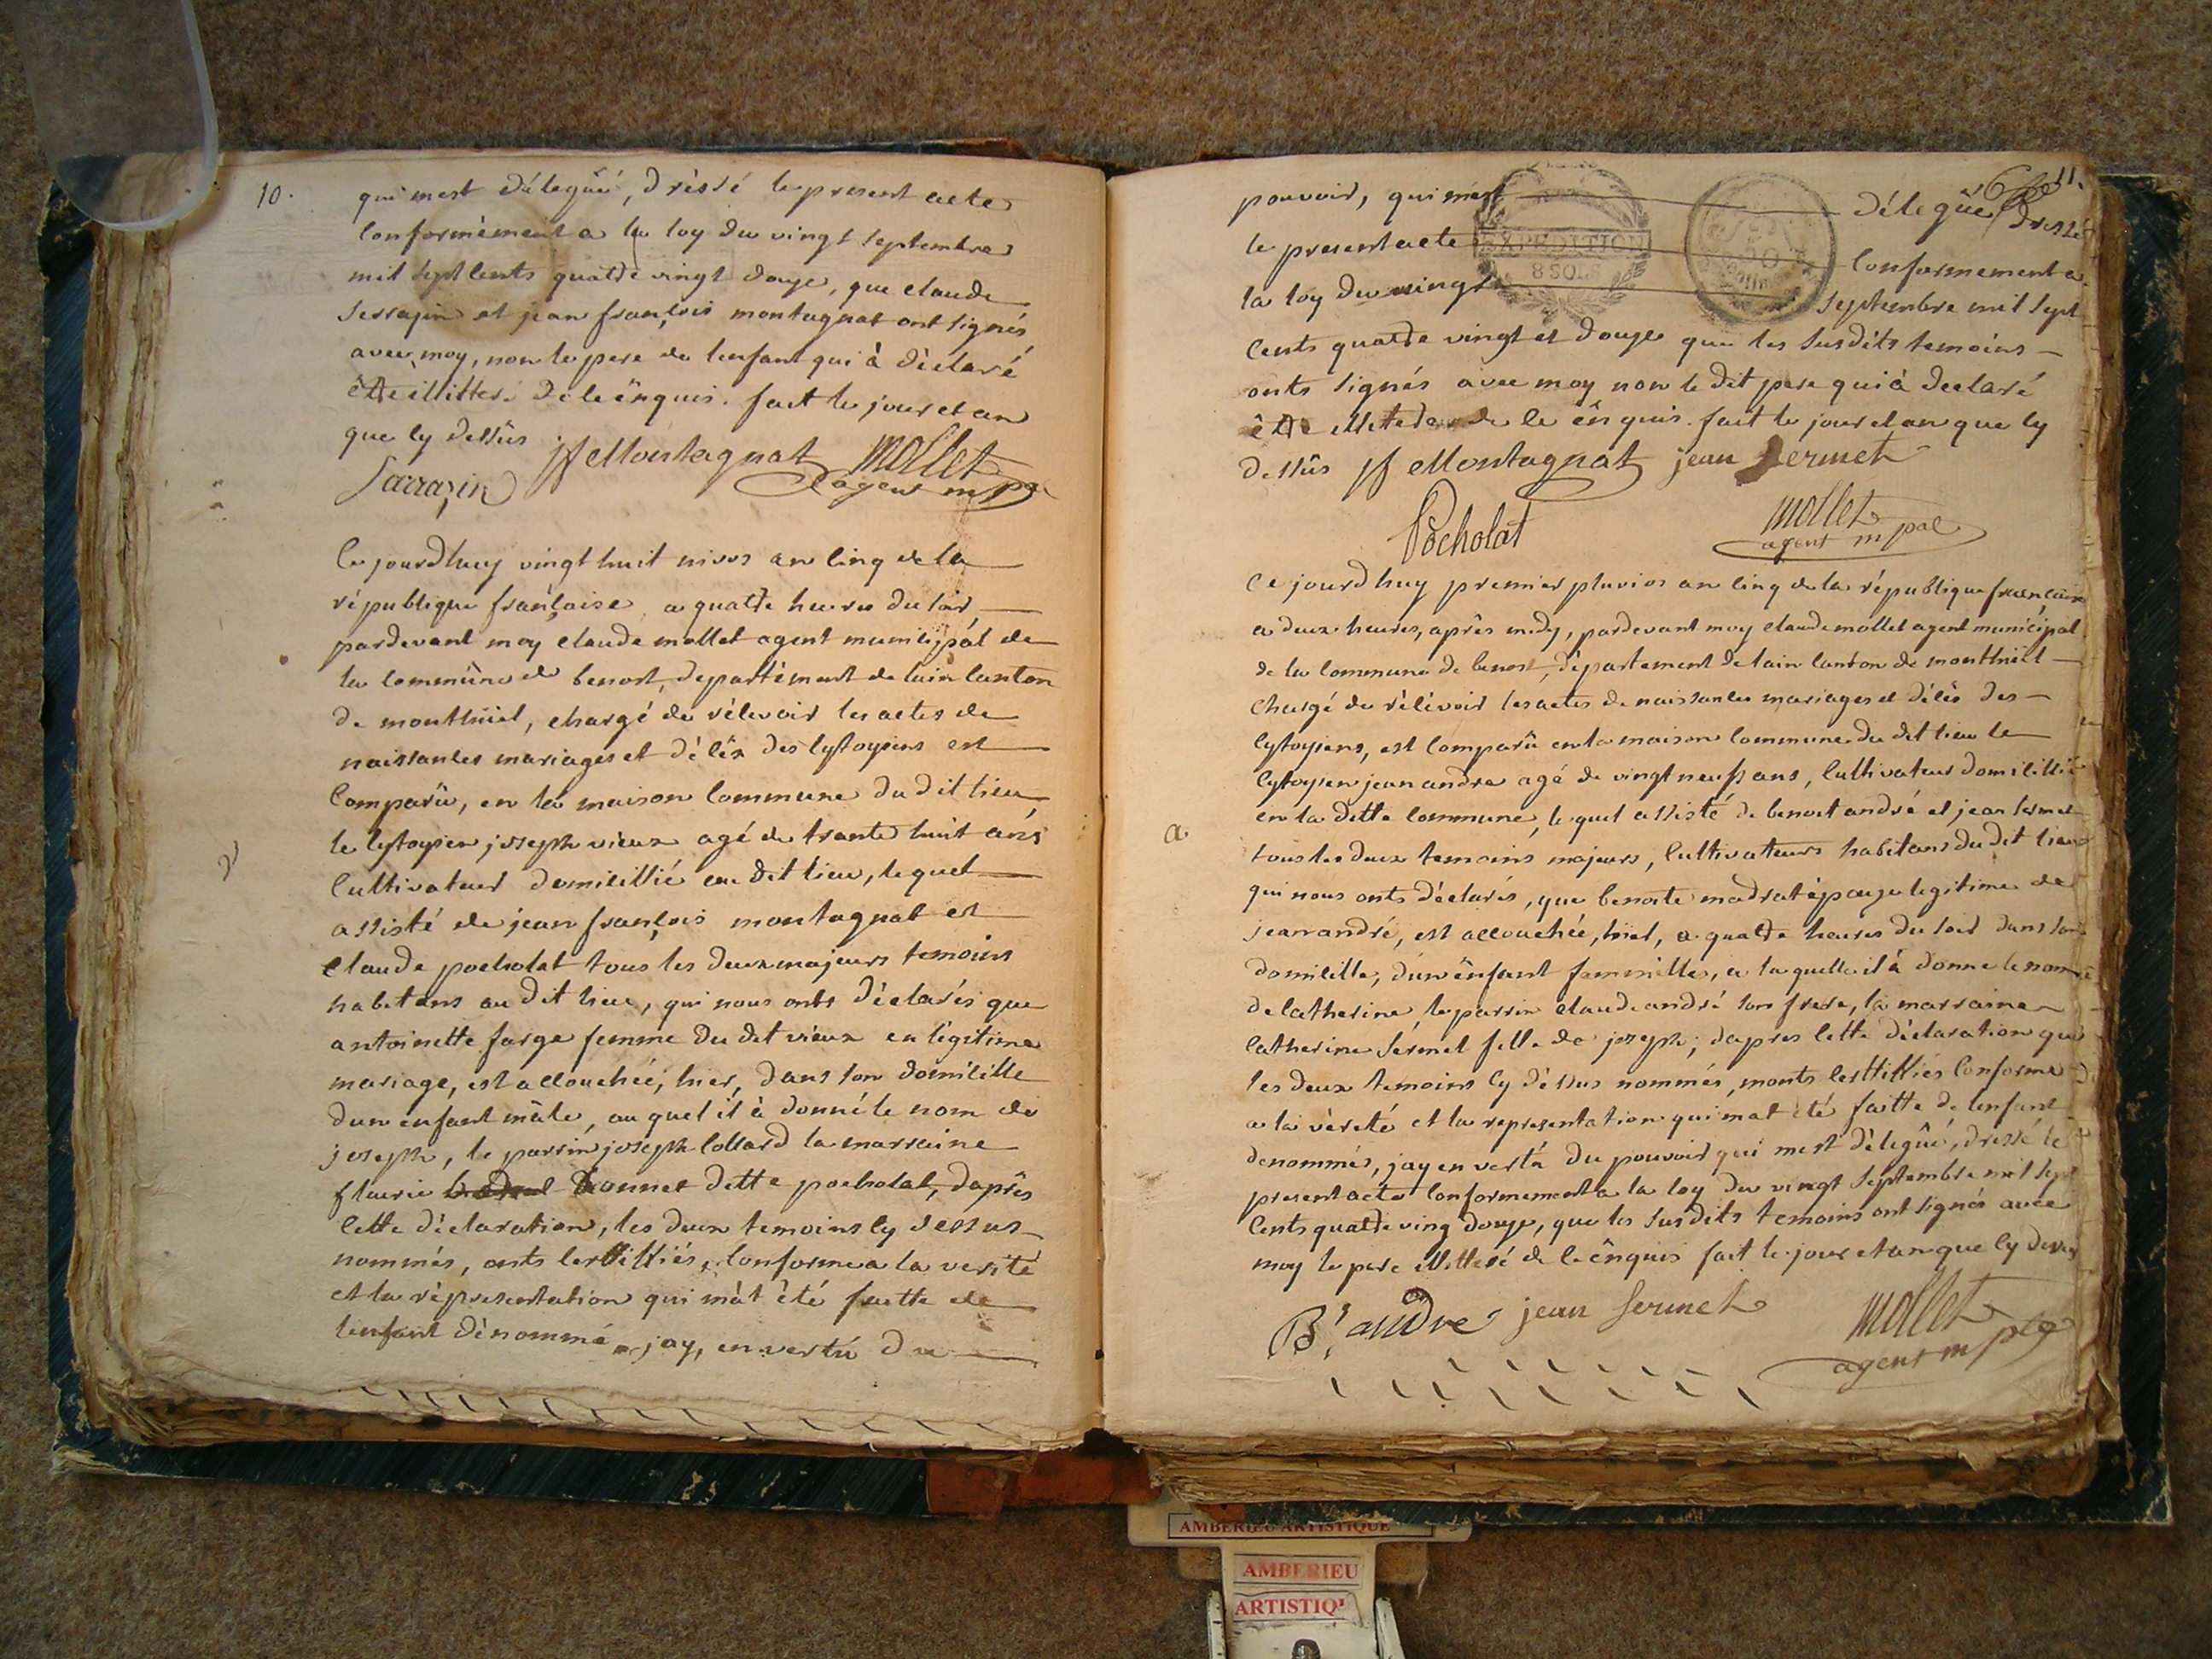 10.
qui mest délégûé, dréssé le present acte
conformément a la loy du vingt septembre
mil sept cents quattre vingt douze, que claude
serrazin et jean françois montagnat ont signés
avec moy, non le pere de lenfant qui à déclaré
être illitteré de ce ênquis. fait le jour et an
que cy dessûs
jf Montagnat Mollet
Sarrazin agent m pal
Ce jourdhuy vingt huit nivos an cinq de la
république française a quattre heures du soir
pardevant moy claude mollet agent municipal de
la commûne de benost, departément de lain canton
de montluiel, chargé de récevoir les actes de
naissances mariages et décêx des cytoyiens est
comparû, en la maison commune du dit lieu
le cytoyien joseph vieux agé de trante huit ans
V
cultivateur domicillié au dit lieu, le quel
assisté de jean françois montagnat et
claude pocholat tous les deux majeurs temoins
habitans au dit lieu, qui nous onts déclarés que
antoinette farge femme du dit vieux en légitime
mariage, est accouchée, hier, dans son domicille
dun enfant mâle, au quel il à donné le nom de
joseph, le parrin joseph collard la marraine
fleurie bonnet dette pocholat, daprês
cette déclaration, les deux temoins cy dessus
nommés, onts certilliés, conforme a la verité
et la réprésentation qui màt été faitte de
lenfant dénommé jay, en vertú du
11.
pouvoir, qui mest délégûé, dressé
le present acte conformement a
EXPEDITION
8 SOLS
la loy du vingt septembre mil sept
cents quattre vingt et douze que les susdits temoins
onts signés avec moy non le dit pere qui à declaré
être de ce ênquis. fait le jour et an que cy
dessûs jf Montagnat jean Sermet
Pocholat Mollet
agent m pal
Ce jourd huy premier pluvios an cinq de la république française
a deux heures, après midy, pardevant moy claude mollet agent municipal
de la commune de benost, département de lain canton de montluiel
chargé de récévoir les actes de naissances mariages et décês des
cytoyiens, est comparû en la maison commune du dit lieu le
cytoyien jean andre agé de vingt neuf ans, cultivateur domicillié
en la ditte commune, le quel assisté de benoit andré et jean sermet
a
tous les deux temoins majeurs, cultivateurs habitans du dit lieu
qui nous onts déclarés, que benoite madrat épouze legitime de
jean andré, est accouchée, hiel, a quattre heures du soir dans son
domicille, dun ênfant feminille, a la quelle il à donne le nom
de catherine, le parrin claude andré son frere, la marraine
catherine sermet fille de joseph; dapres cette déclaration que
les deux temoins cy déssus nommés, monts certilliés conforme
a la vérité et la representation qui mat été faitte de lenfant
denommés, jay en vertú du pouvoir qui mest délégûé, dressé le
present acte conformement a la loy du vingt septembre mil sept
cents quattre ving douze, que les susdits temoins ont signés avec
moy le pere illitteré de ce ênquis fait le jour et an que cy dessus
Bt andre jean Sermet Mollet
agent m pal
AMBERIEU ARTISTIQUE
AMBERIEU
ARTISTIQU